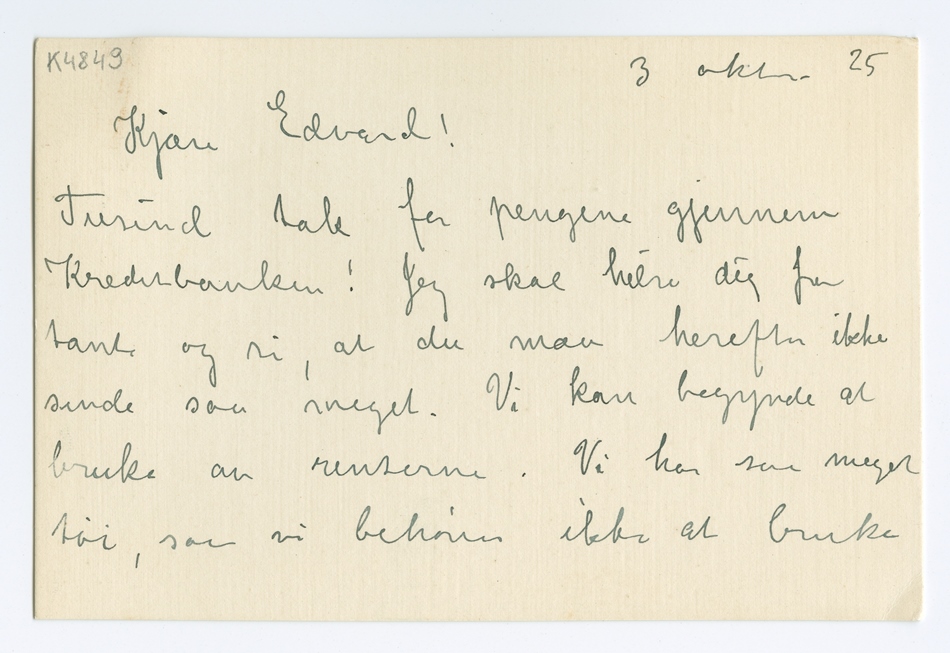 K4849
3 oktbr. 25
Kjære Edvard!
Tusind tak for pengene gjennem
Kreditbanken! Jeg skal hilse dig fra
tante og si, at du maa herefter ikke
sende saa meget. Vi kan begynde at
bruke av renterne. Vi har saa meget
tøi, saa vi behøver ikke at bruke